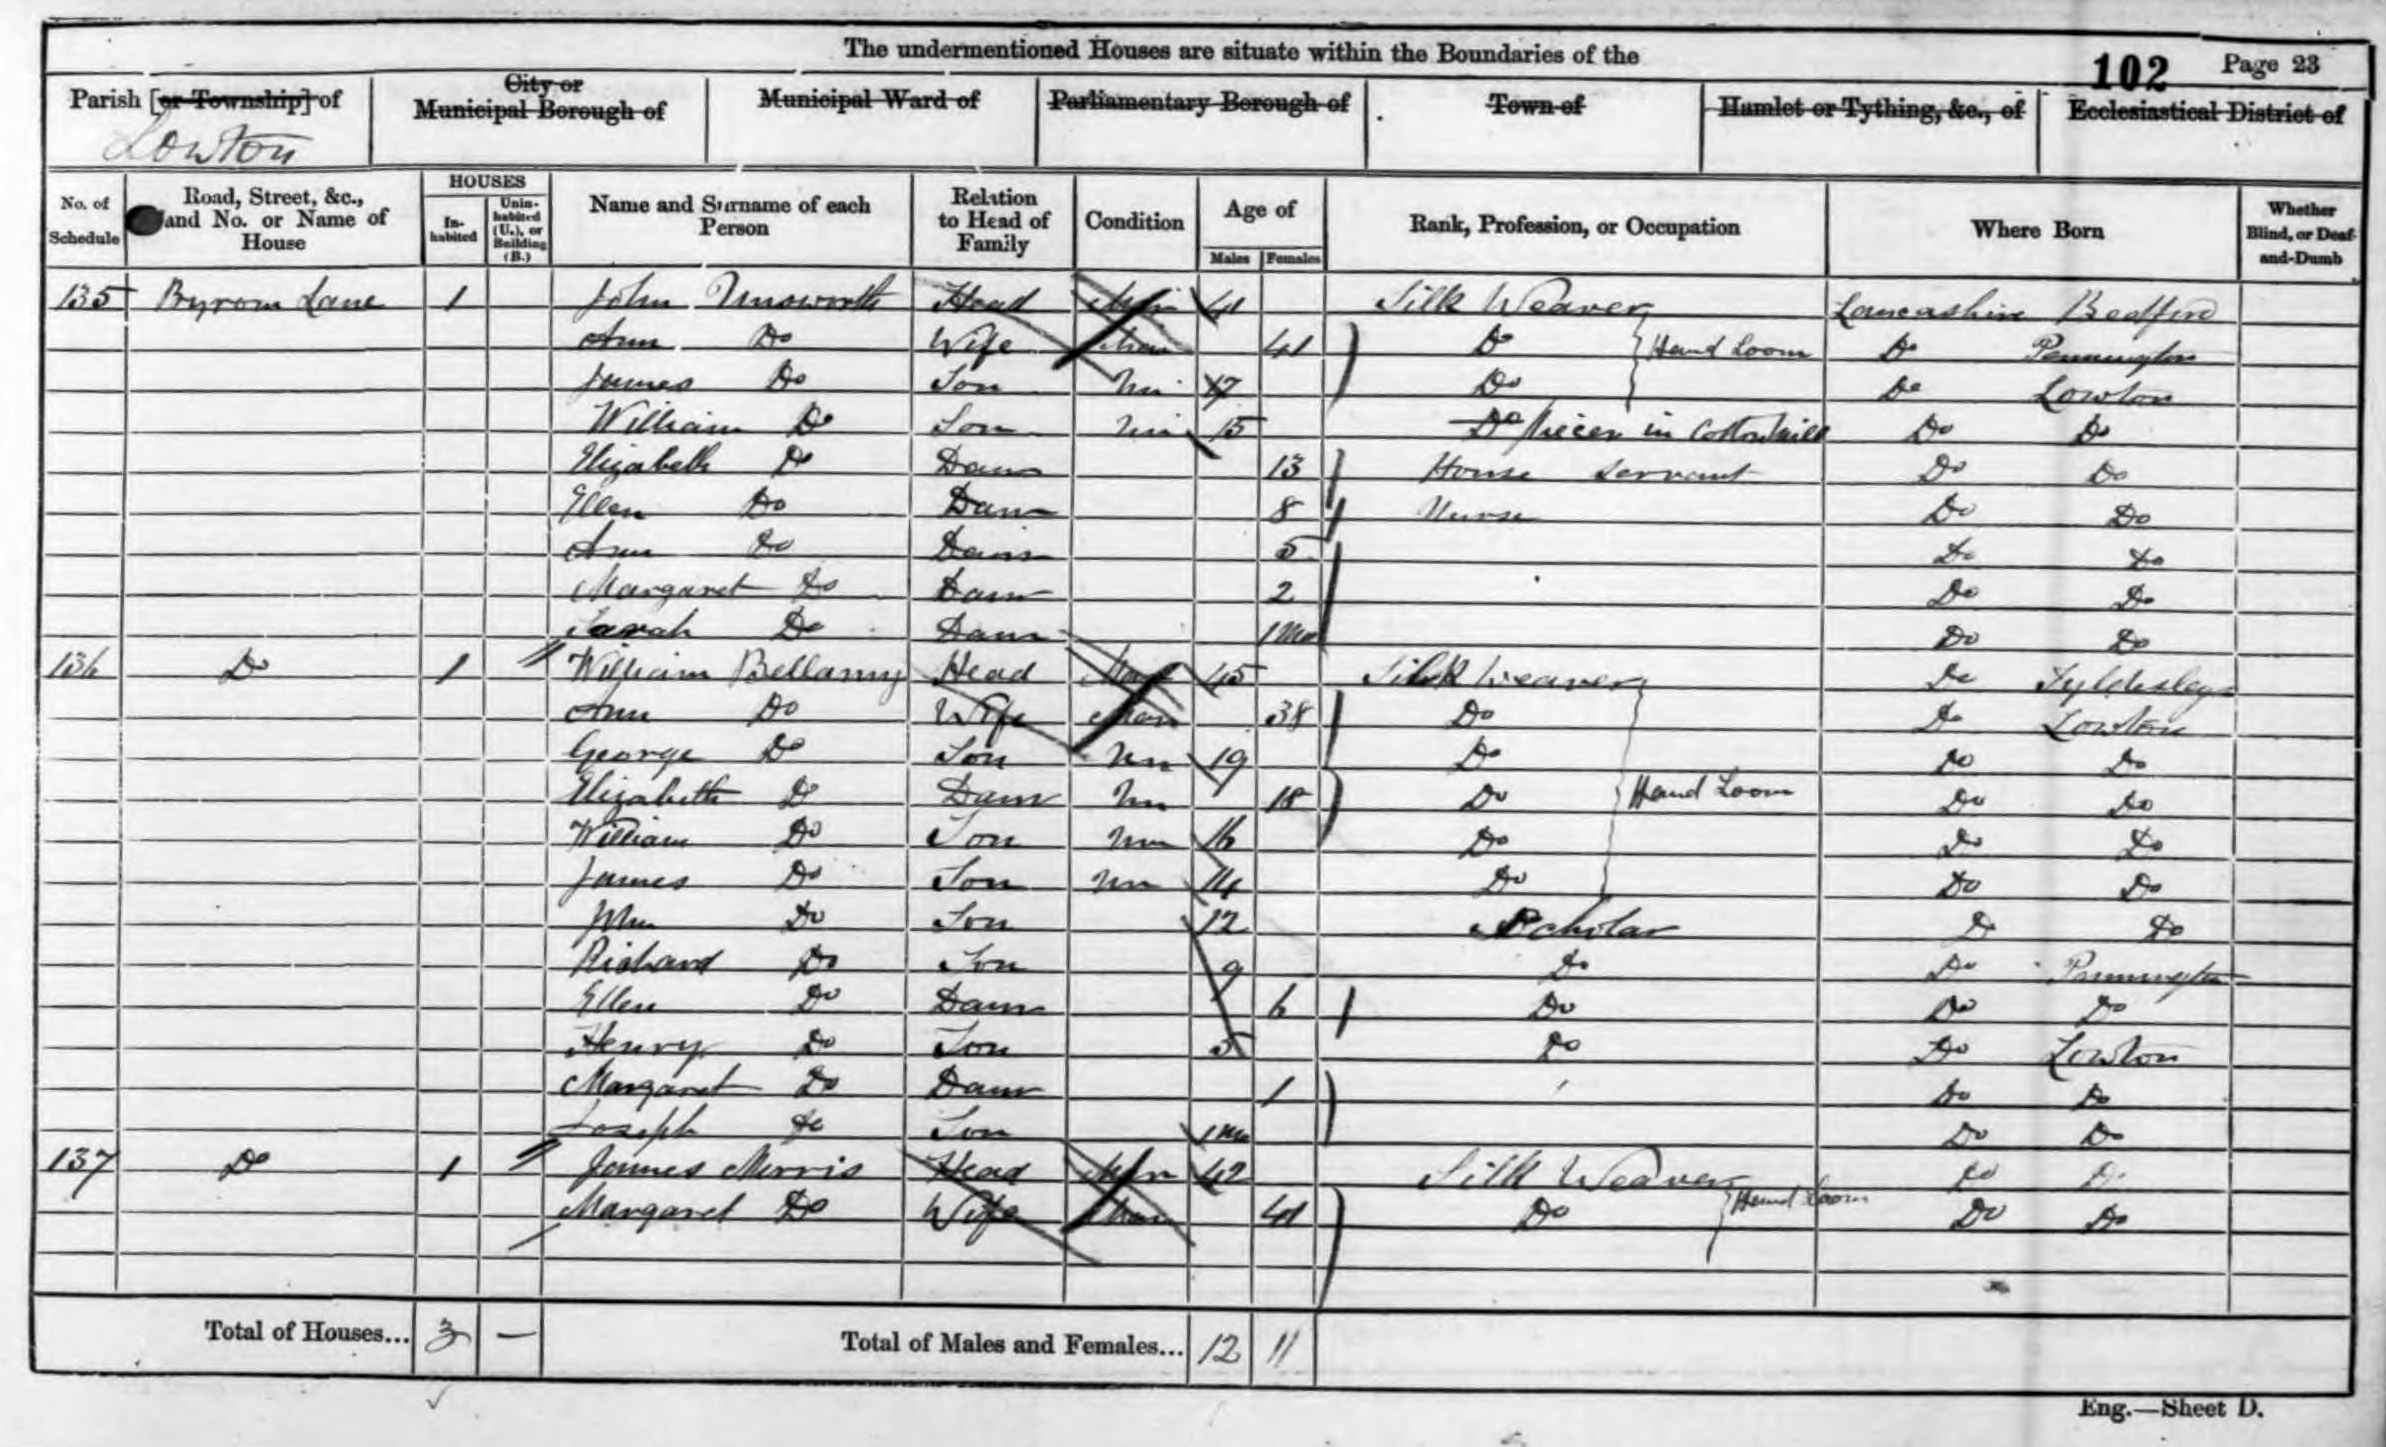 The undermentioned Houses are situate within the Boundaries of the
102 Page 23
Parish [or Township] of City or Municipal Borough of Municipal Ward of Parliamentary Borough of Town of Hamlet or Tything, &c., of Ecclesiastical District of
Lowton
No. of Schedule Road, Street, &c., and No. or Name of House HOUSES In-habited Unin-habited (U.), or Building (B.) Name and Surname of each Person Relation to Head of Family Condition Age of Males Females Rank, Profession, or Occupation Where Born Whether Blind, or Deaf-and-Dumb
135 Byrom Lane 1 John Unsworth Head Mar 41 Silk Weaver Lancashire Bedford
Ann Do Wife Mar 41 Do Hand Loom Do Pennington
James Do Son Un 17 Do Do Lowton
William Do Son Un 15 Do Piecer in Cotton Mill Do Do
Elizabeth Do Daur 13 House Servant Do Do
Ellen Do Daur 8 Nurse Do Do
Ann Do Daur 5 Do Do
Margaret Do Daur 2 Do Do
Sarah Do Daur 1 Mo Do Do
136 Do 1 William Bellamy Head Mar 45 Silk Weaver Do Tyldesley
Ann Do Wife Mar 38 Do Do Lowton
George Do Son Un 19 Do Do Do
Elizabeth Do Daur Un 18 Do Hand Loom Do Do
William Do Son Un 16 Do Do Do
James Do Son Un 14 Do Do Do
John Do Son 12 Scholar Do Do
Richard Do Son 9 Do Do Pennington
Ellen Do Daur 6 Do Do Do
Henry Do Son 5 Do Do Lowton
Margaret Do Daur 1 Do Do
Joseph Do Son 1 Mo Do Do
137 Do 1 James Morris Head Mar 42 Silk Weaver Do Do
Margaret Do Wife Mar 41 Do Hand Loom Do Do
Total of Houses... 3 — Total of Males and Females... 12 11
Eng.—Sheet D.